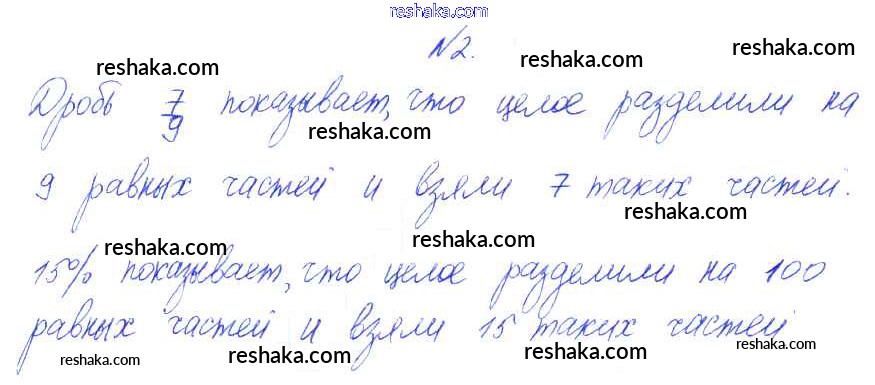 reshaka.com
№2.
reshaka.com reshaka.com reshaka.com
Дробь 7/9 показывает, что целое разделили на
reshaka.com reshaka.com
9 равных частей и взяли 7 таких частей.
reshaka.com
reshaka.com reshaka.com
15% показывает, что целое разделили на 100
равных частей и взяли 15 таких частей
reshaka.com reshaka.com reshaka.com reshaka.com